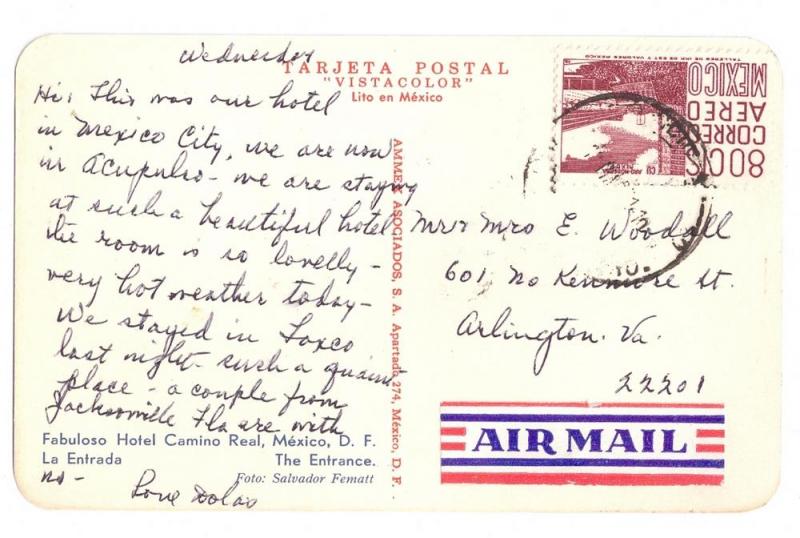 Wednesday
TARJETA POSTAL
"VISTACOLOR"
Lito en México
Hi, This was our hotel
in Mexico City, we are now
in Acupulso - we are staying
at such a beautiful hotel
the room is so lovelly -
very hot weather today -
We stayed in Taxco
last night - such a quaint
place - a couple from
Jacksonville Fla are with
us -
Love
Fabuloso Hotel Camino Real, México, D. F.
La Entrada The Entrance.
Foto: Salvador Fematt
AMMEX ASOCIADOS, S. A. Apartado 274, México, D. F.
80CTS
CORREO
AEREO
MEXICO
TALLERES DE IMP. DE EST. Y VALORES-MEXICO
Mr & Mrs E. Woodall
601 No Kenmore St.
Arlington. Va.
22201
AIR MAIL